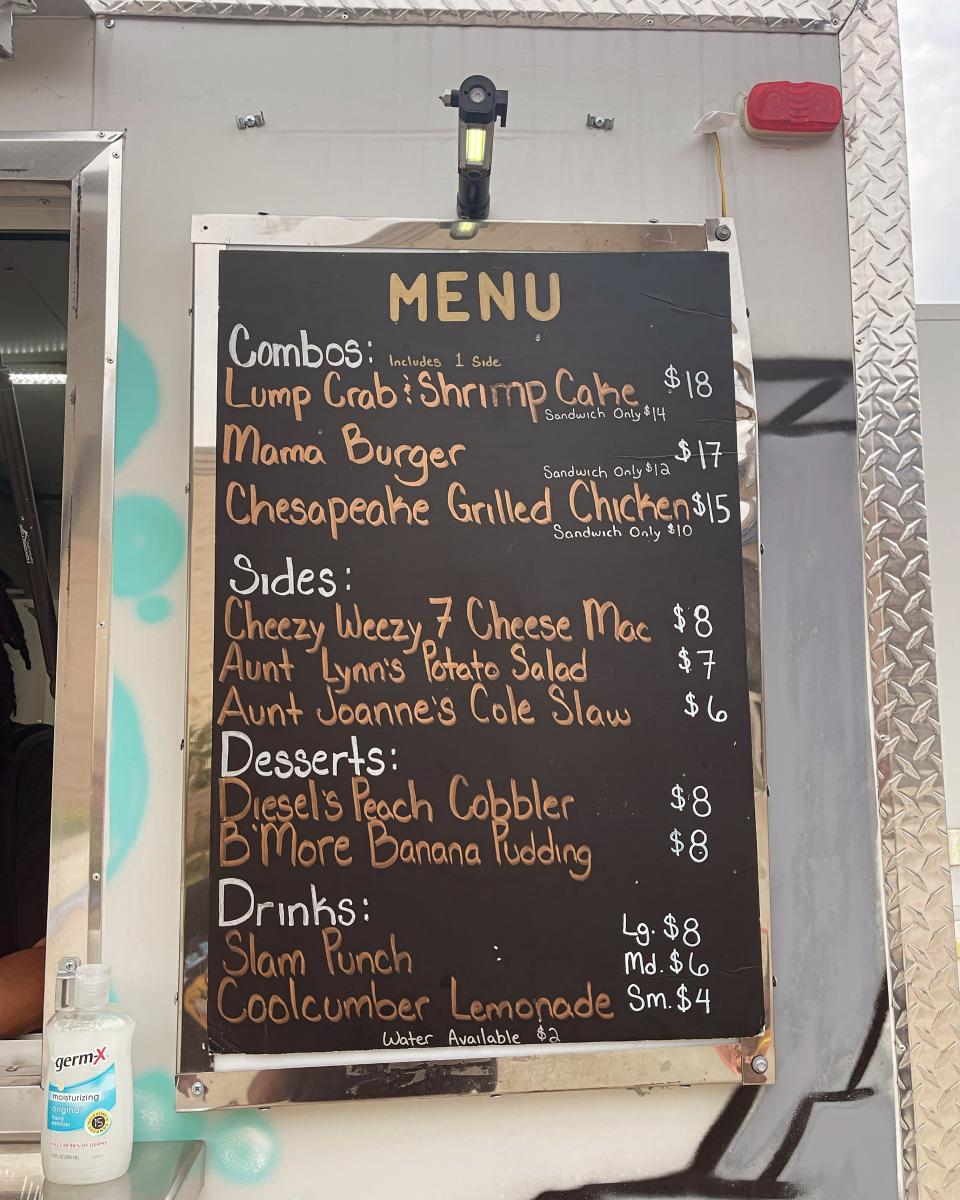 MENU
Combos: Includes 1 Side
Lump Crab & Shrimp Cake $18
Sandwich Only $14
Mama Burger $17
Sandwich Only $12
Chesapeake Grilled Chicken $15
Sandwich Only $10
Sides:
Cheezy Weezy 7 Cheese Mac $8
Aunt Lynn's Potato Salad $7
Aunt Joanne's Cole Slaw $6
Desserts:
Diesel's Peach Cobbler $8
B'More Banana Pudding $8
Drinks:
Lg. $8
Slam Punch Md. $6
Coolcumber Lemonade Sm. $4
Water Available $2
germ-X
moisturizing
original
hand
sanitizer
15